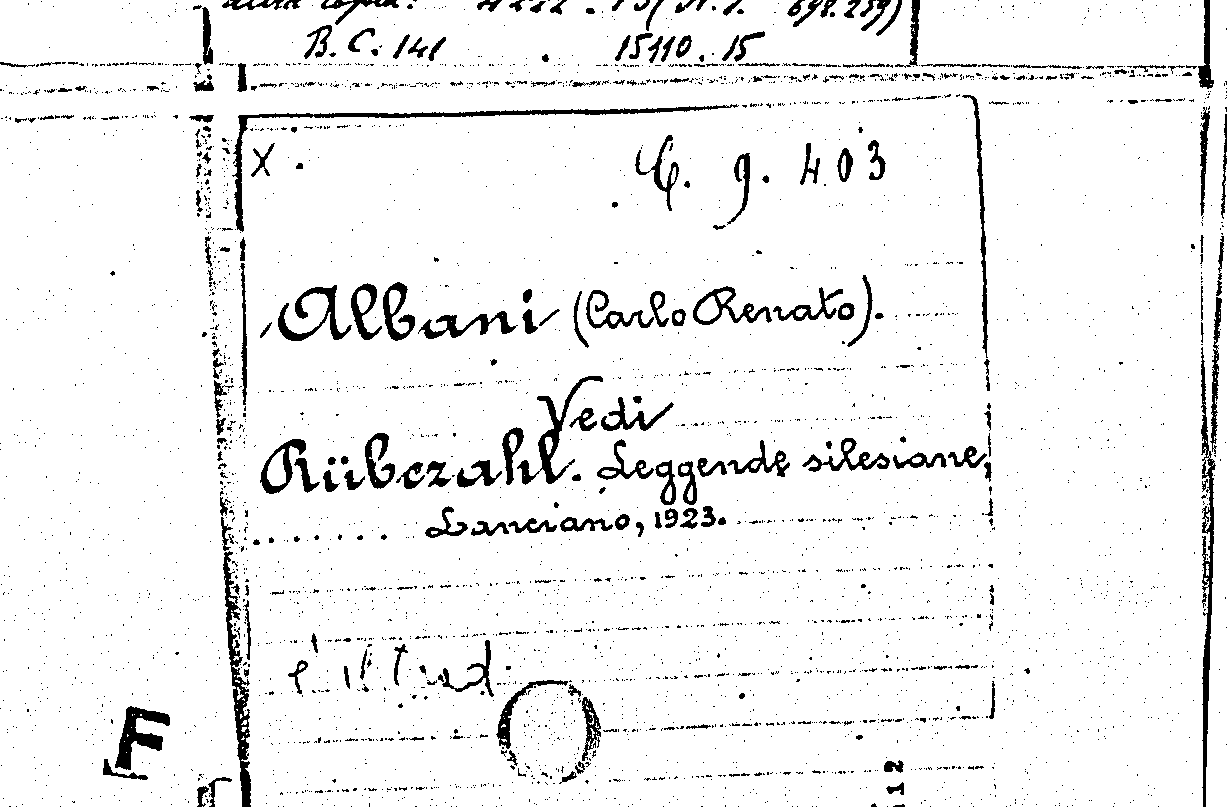 altra copia: 4222.15 (N.I. 698.259)
B.C. 141 . 15110.15
X . C. 9. 403
Albani (Carlo Renato).
Vedi
Rübezahl. Leggende silesiane,
....... Lanciano, 1923.
è il trad.
F